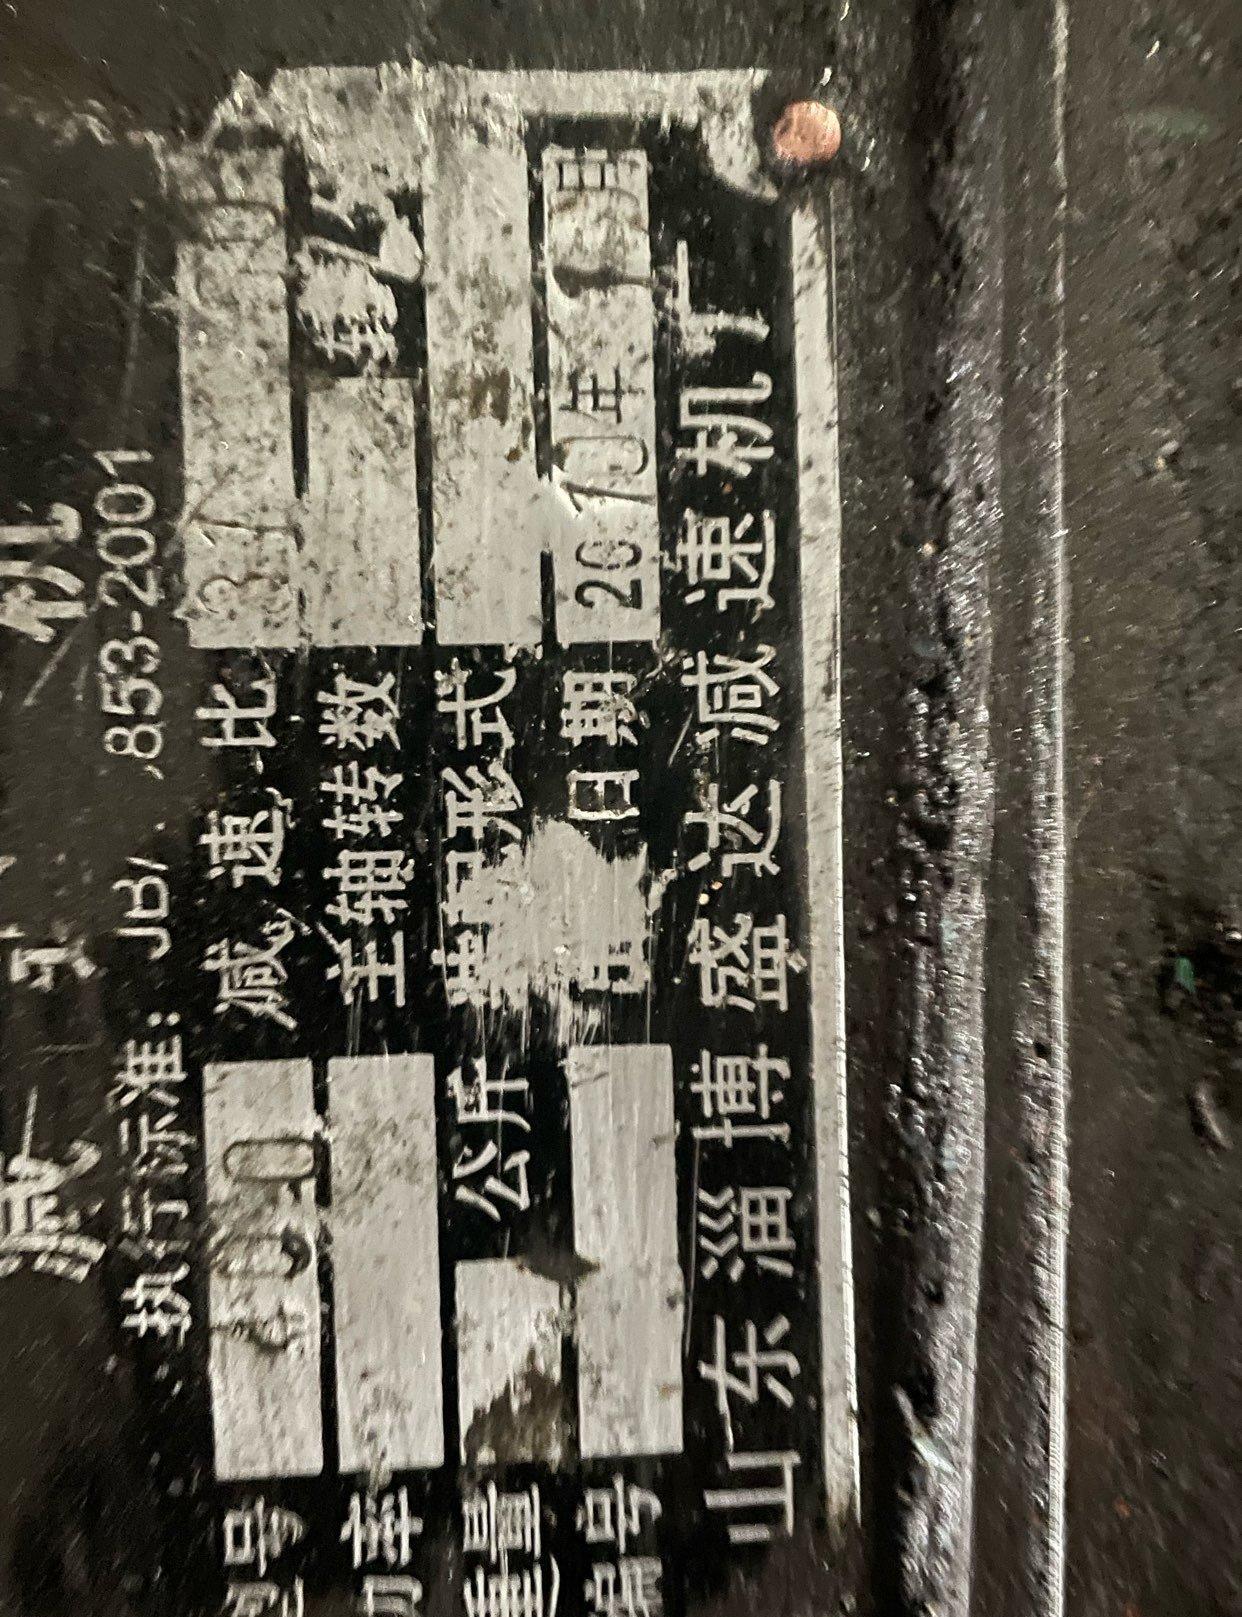 减 机
执行标准: JB/ 853-2001
型号 400 减速比 31
功率 主轴转数 转/
重量 公斤 装配形式
编号 日期 2010年 月
山东淄博盛达减速机厂